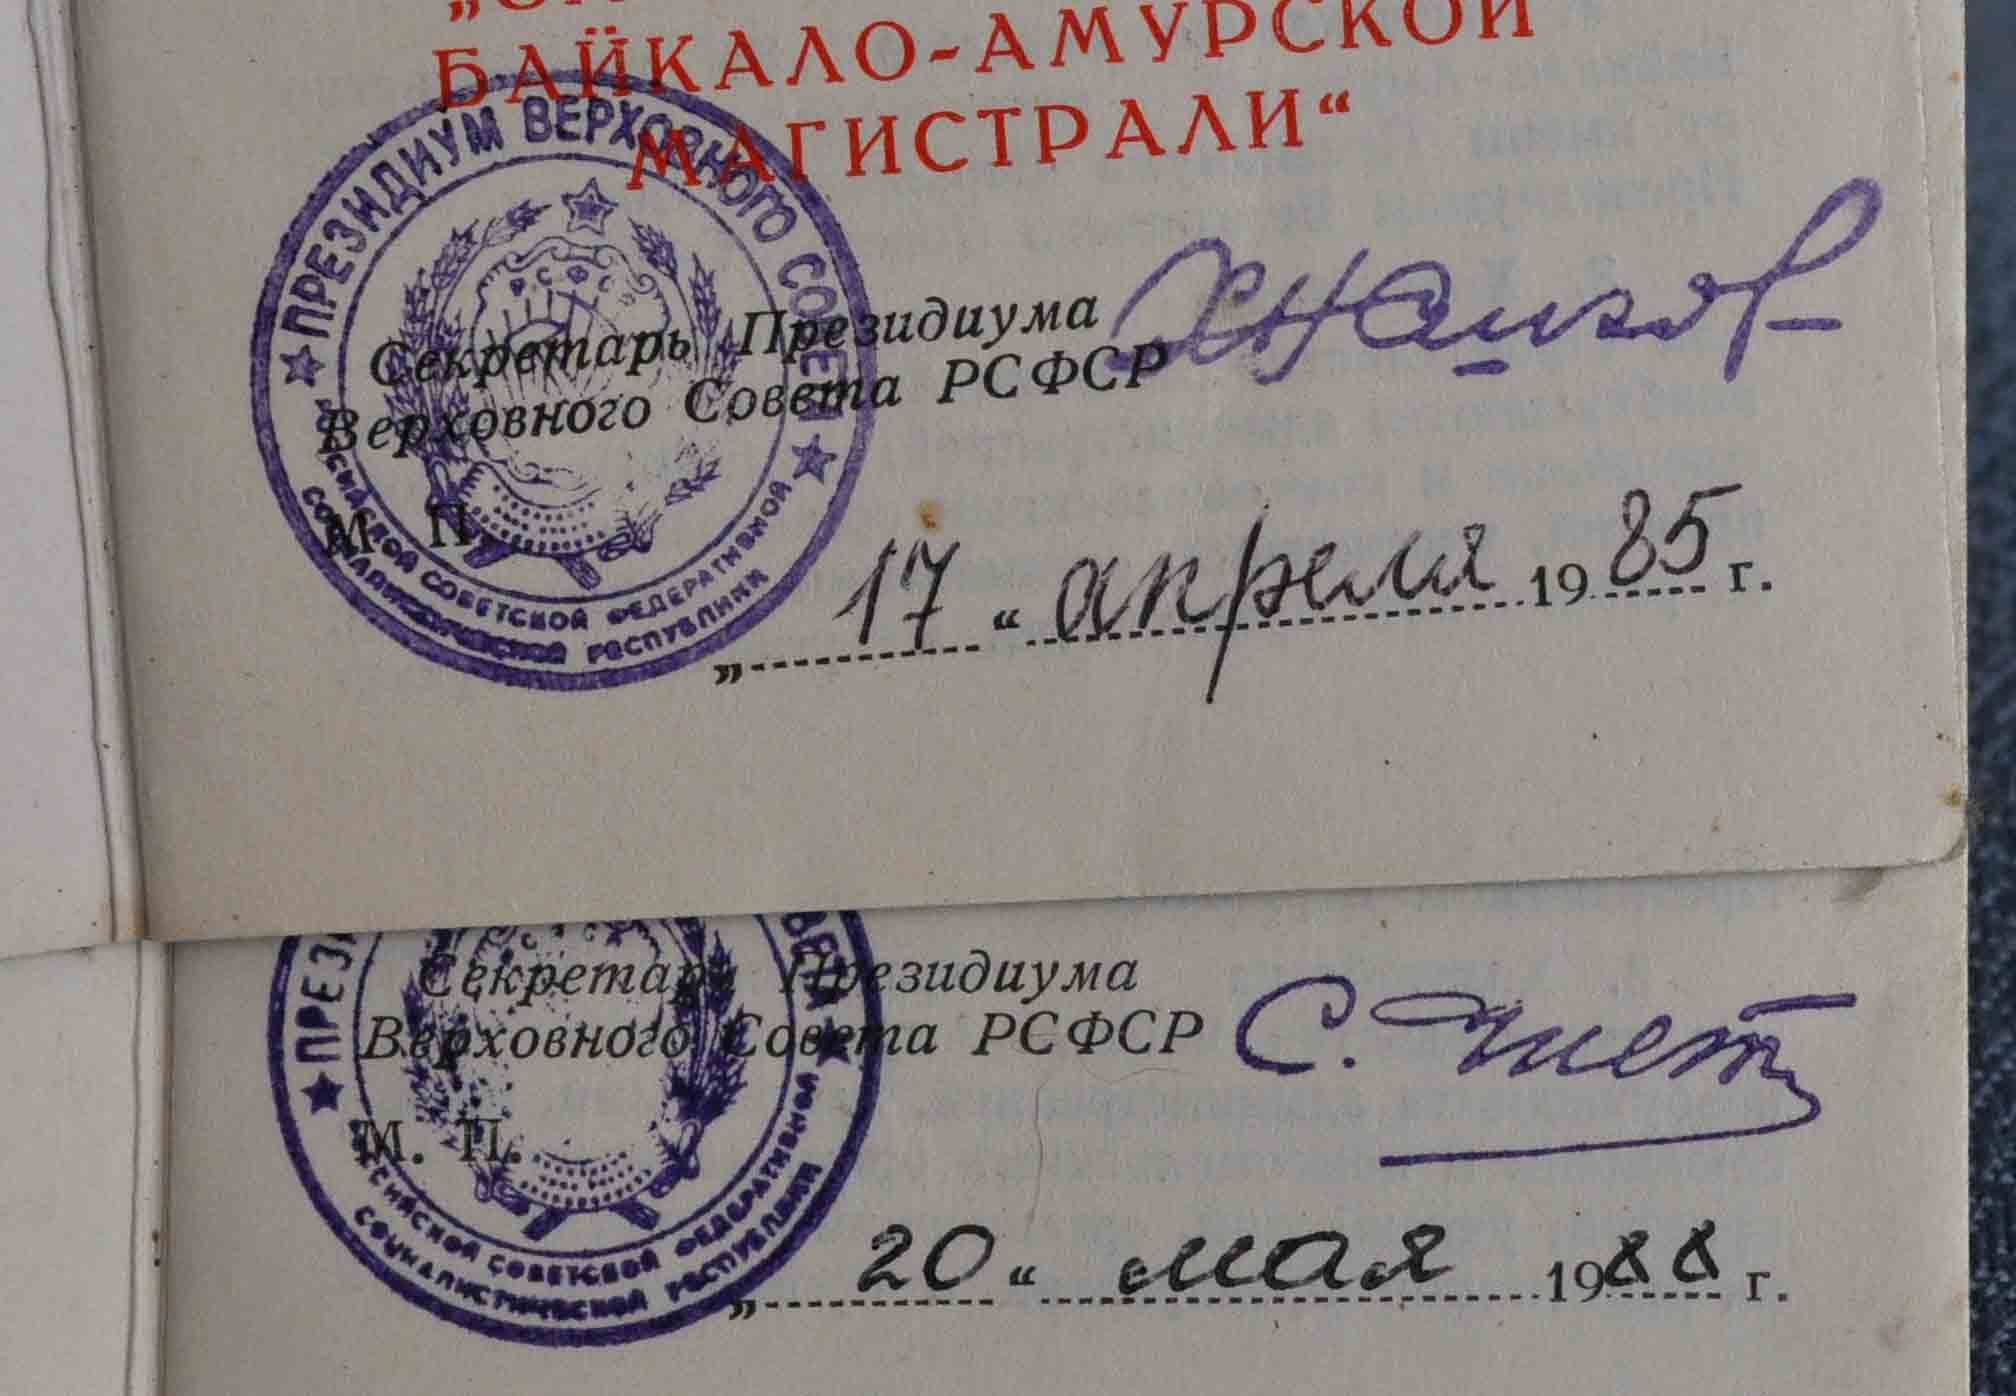 БАЙКАЛО-АМУРСКОЙ
МАГИСТРАЛИ“
ПРЕЗИДИУМ ВЕРХОВНОГО СОВЕТА
РОССИЙСКОЙ СОВЕТСКОЙ ФЕДЕРАТИВНОЙ
СОЦИАЛИСТИЧЕСКОЙ РЕСПУБЛИКИ
Секретарь Президиума
Верховного Совета РСФСР
М. П.
„17“ апреля 1985 г.
Секретарь Президиума
Верховного Совета РСФСР
С. Чист
М. П.
РОССИЙСКОЙ СОВЕТСКОЙ ФЕДЕРАТИВНОЙ
СОЦИАЛИСТИЧЕСКОЙ РЕСПУБЛИКИ
„20“ мая 1988 г.